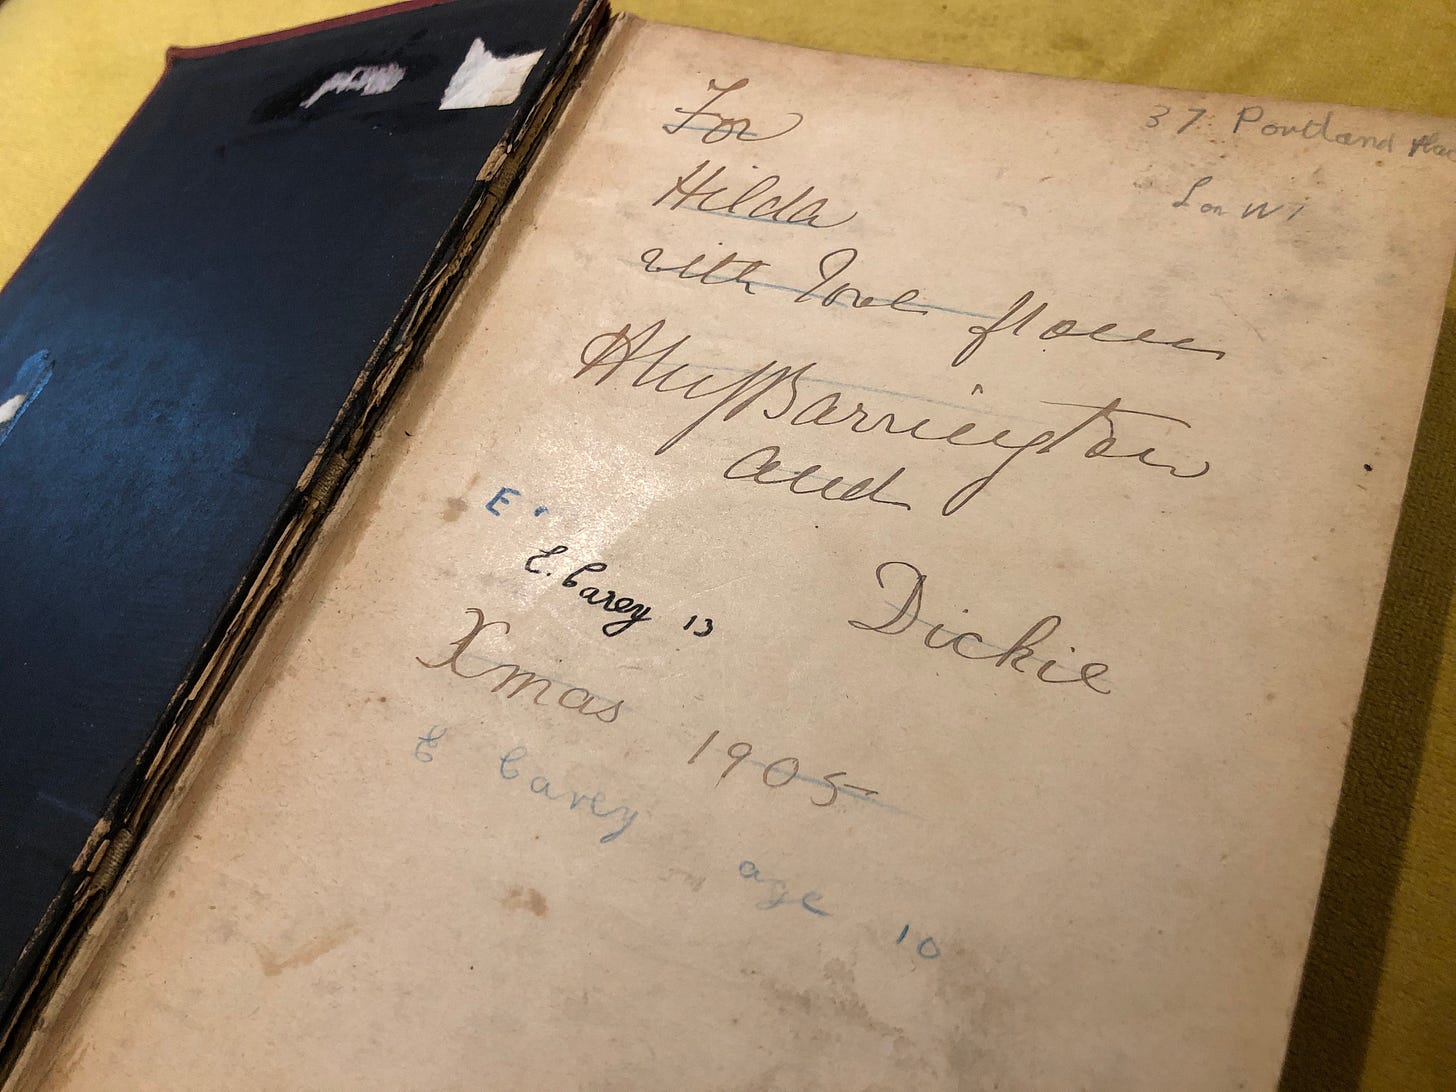 37 Portland
Lon W1
For
Hilda
with love from
Barrington
and
Dickie
E.
E. Carey 13
Xmas 1905
E Carey age 10